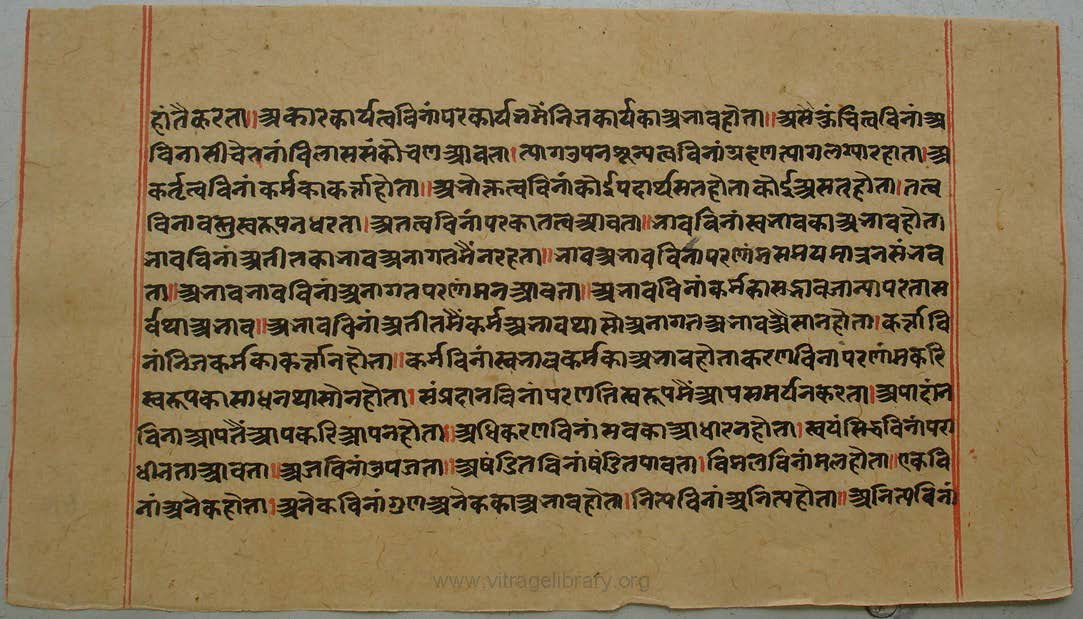 हांतैकरता॥अकारकार्यत्वविनांपरकार्यनमैंनिजकार्यकाअभावहोता॥असंकुंचित्वविनांअ
विनासीचेतनांविलाससंकोचणआवता।त्यागउपनशून्यत्वविनांग्रहणत्यागलग्यारहाता।अ
कर्तृत्वविनांकर्मकाकर्त्ताहोता॥अभोक्तृत्वविनांकोईपदार्थसतहोताकोईअसतहोता।तत्व
विनावस्तुस्वरूपनधरता।अतत्वविनांपरकातत्वआवता॥भावविनांस्वभावकाअभावहोता
भावविनांअतीतकाभावअनागतमैंनरहता॥भावअभावविनांपरणांमसमयमात्रनसंभव
ता॥अभावभावविनांअनागतपरणांमनआवता॥अभावविनांकर्मकासद्भावजान्यापरतास
र्वथाअभाव॥अभावविनांअतीतमैंकर्मअभावथासोअनागतअभावअैसानहोता।कर्त्तावि
नांनिजकर्मकाकर्त्तानहोता॥कर्मविनांस्वभावकर्मकाअभावहोताकरणविनांपरणांमकरि
स्वरूपकासाधनथासोनहोता।संप्रदानविनांपरणतिस्वरूपमैंआपसमर्पनकरता।अपादांन
विनाआपतैंआपकरिआपनहोता॥अधिकरणविनांसवकाआधारनहोता।स्वयंसिद्धविनांपरा
धीनताआवता॥अजविनांउपजता॥अषंडितविनांषंडितपावता।विमलविनांमलहोता॥एकवि
नांअनेकहोता।अनेकविनांगुणअनेककाअभावहोता।नित्यविनांअनित्यहोता॥अनित्यविनां
www.vitragelibrary.org